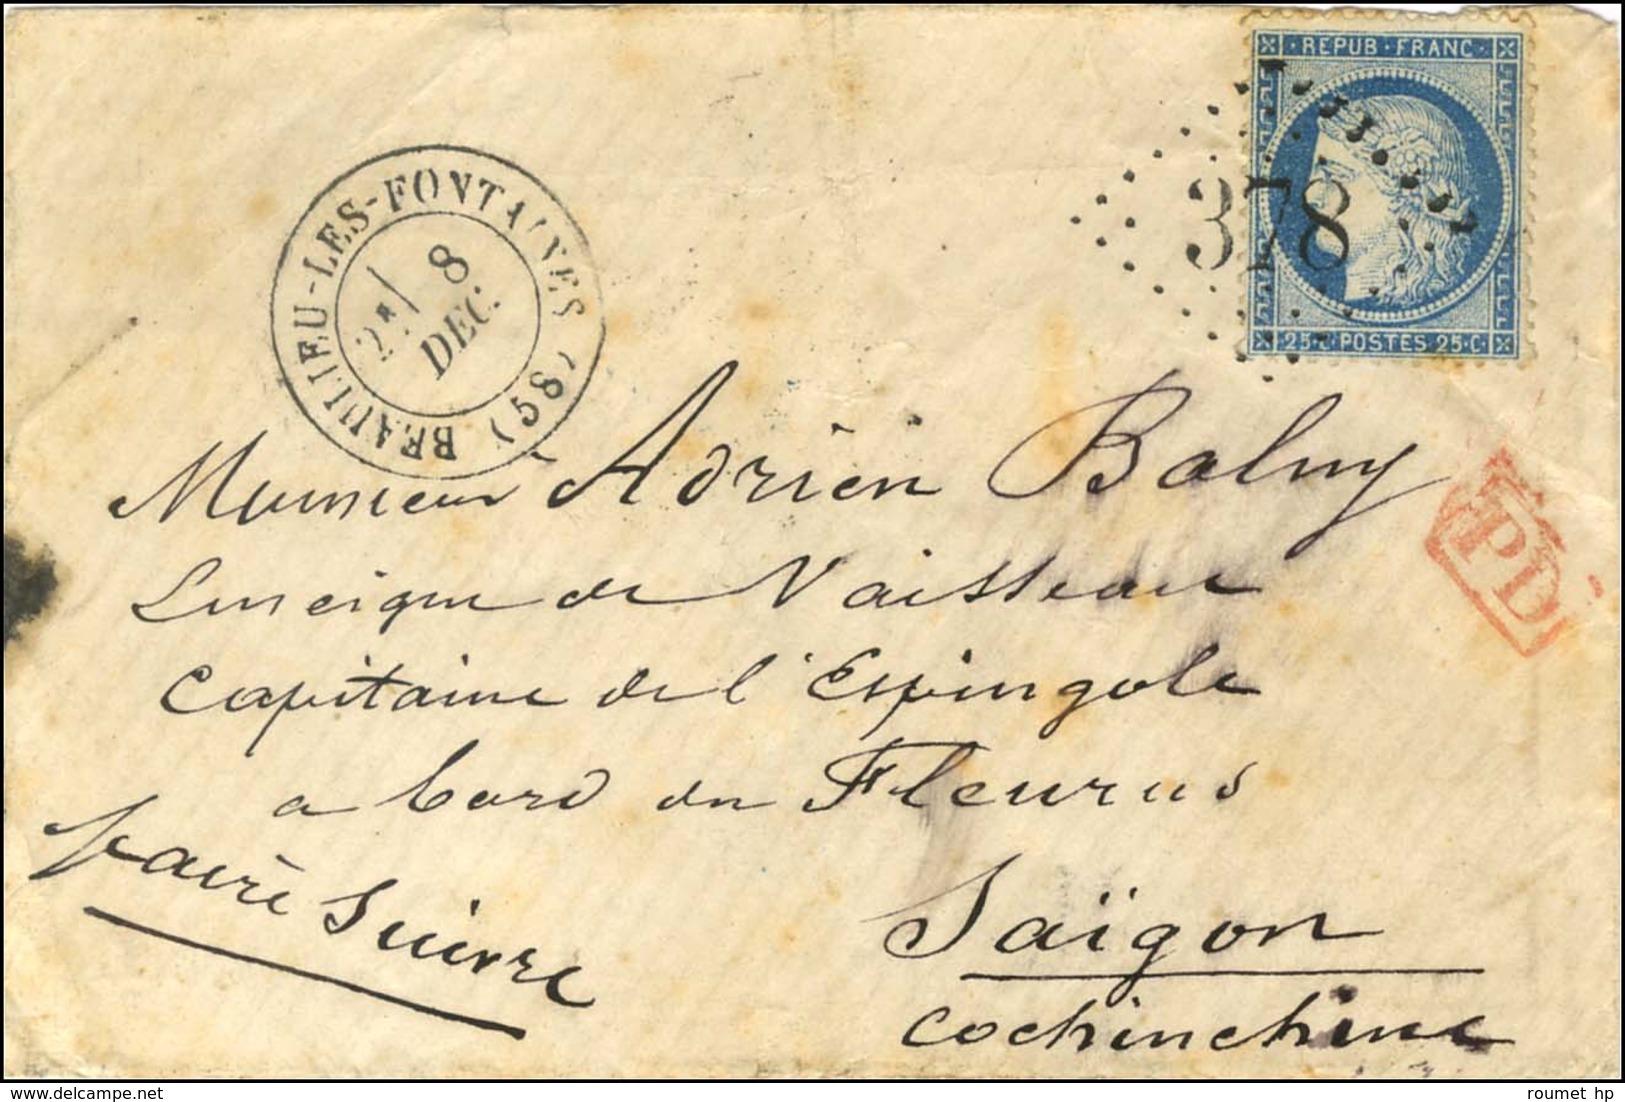 REPUB · FRANC
378
25 · C POSTES 25 · C
BEAULIEU-LES-FONTAINES (58)
8
DEC.
PD
Monsieur Adrien Balny
Enseigne de Vaisseau
Capitaine de l'Espingole
a bord du Fleurus
faire suivre
Saïgon
Cochinchine
roumet hp